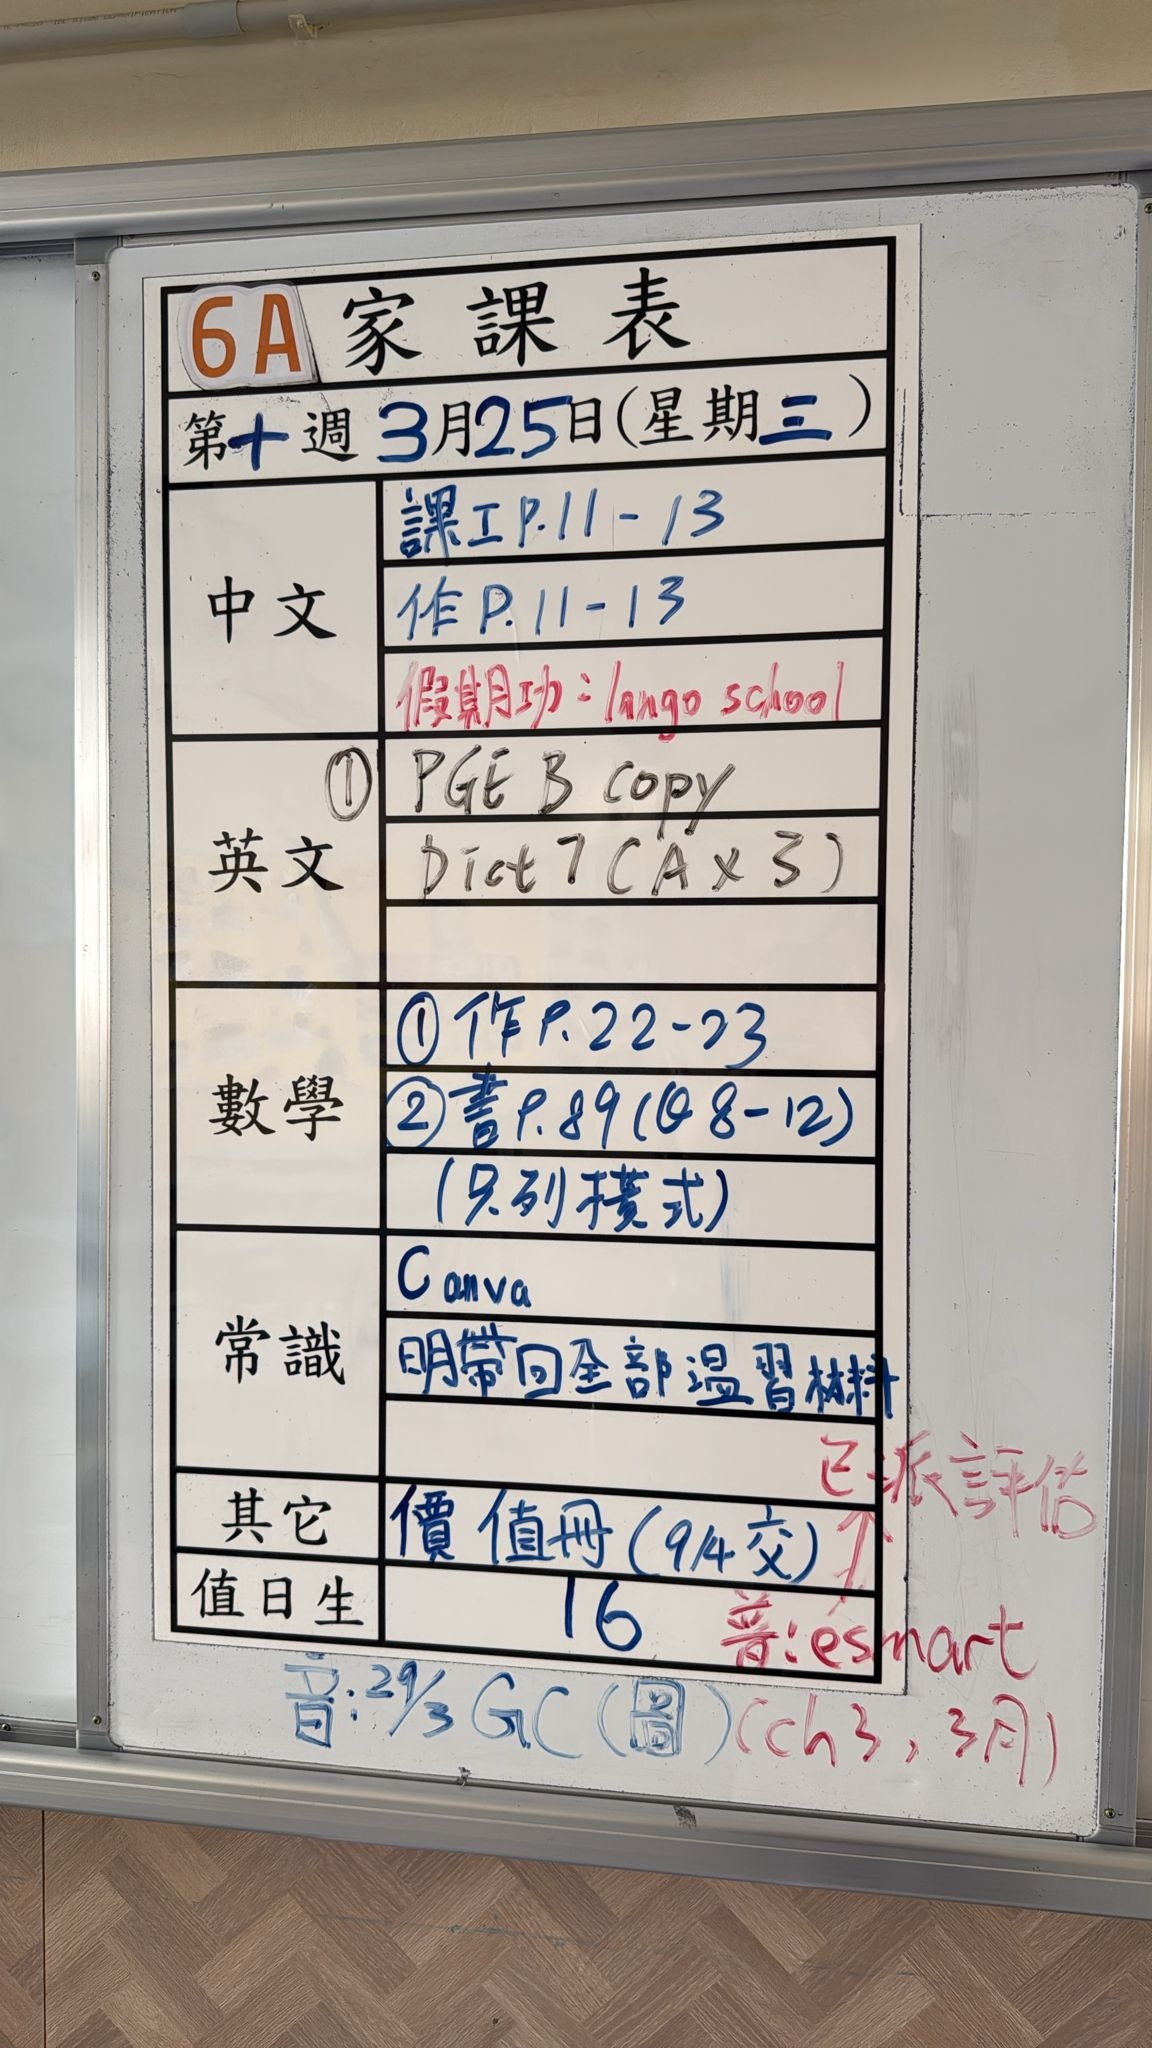 6A 家課表
第十週 3月25日(星期三)
中文
課工P.11-13
作P.11-13
假期功：lango school
英文
① PGE B copy
Dict 7 (A x 3)
數學
①作P.22-23
②書P.89(Q8-12)
(只列橫式)
常識
Canva
明帶回全部溫習材料
已派評估
其它
價值冊(9/4交)
↑
值日生
16
普:esmart
(ch3, 3月)
音:29/3 GC(圖)